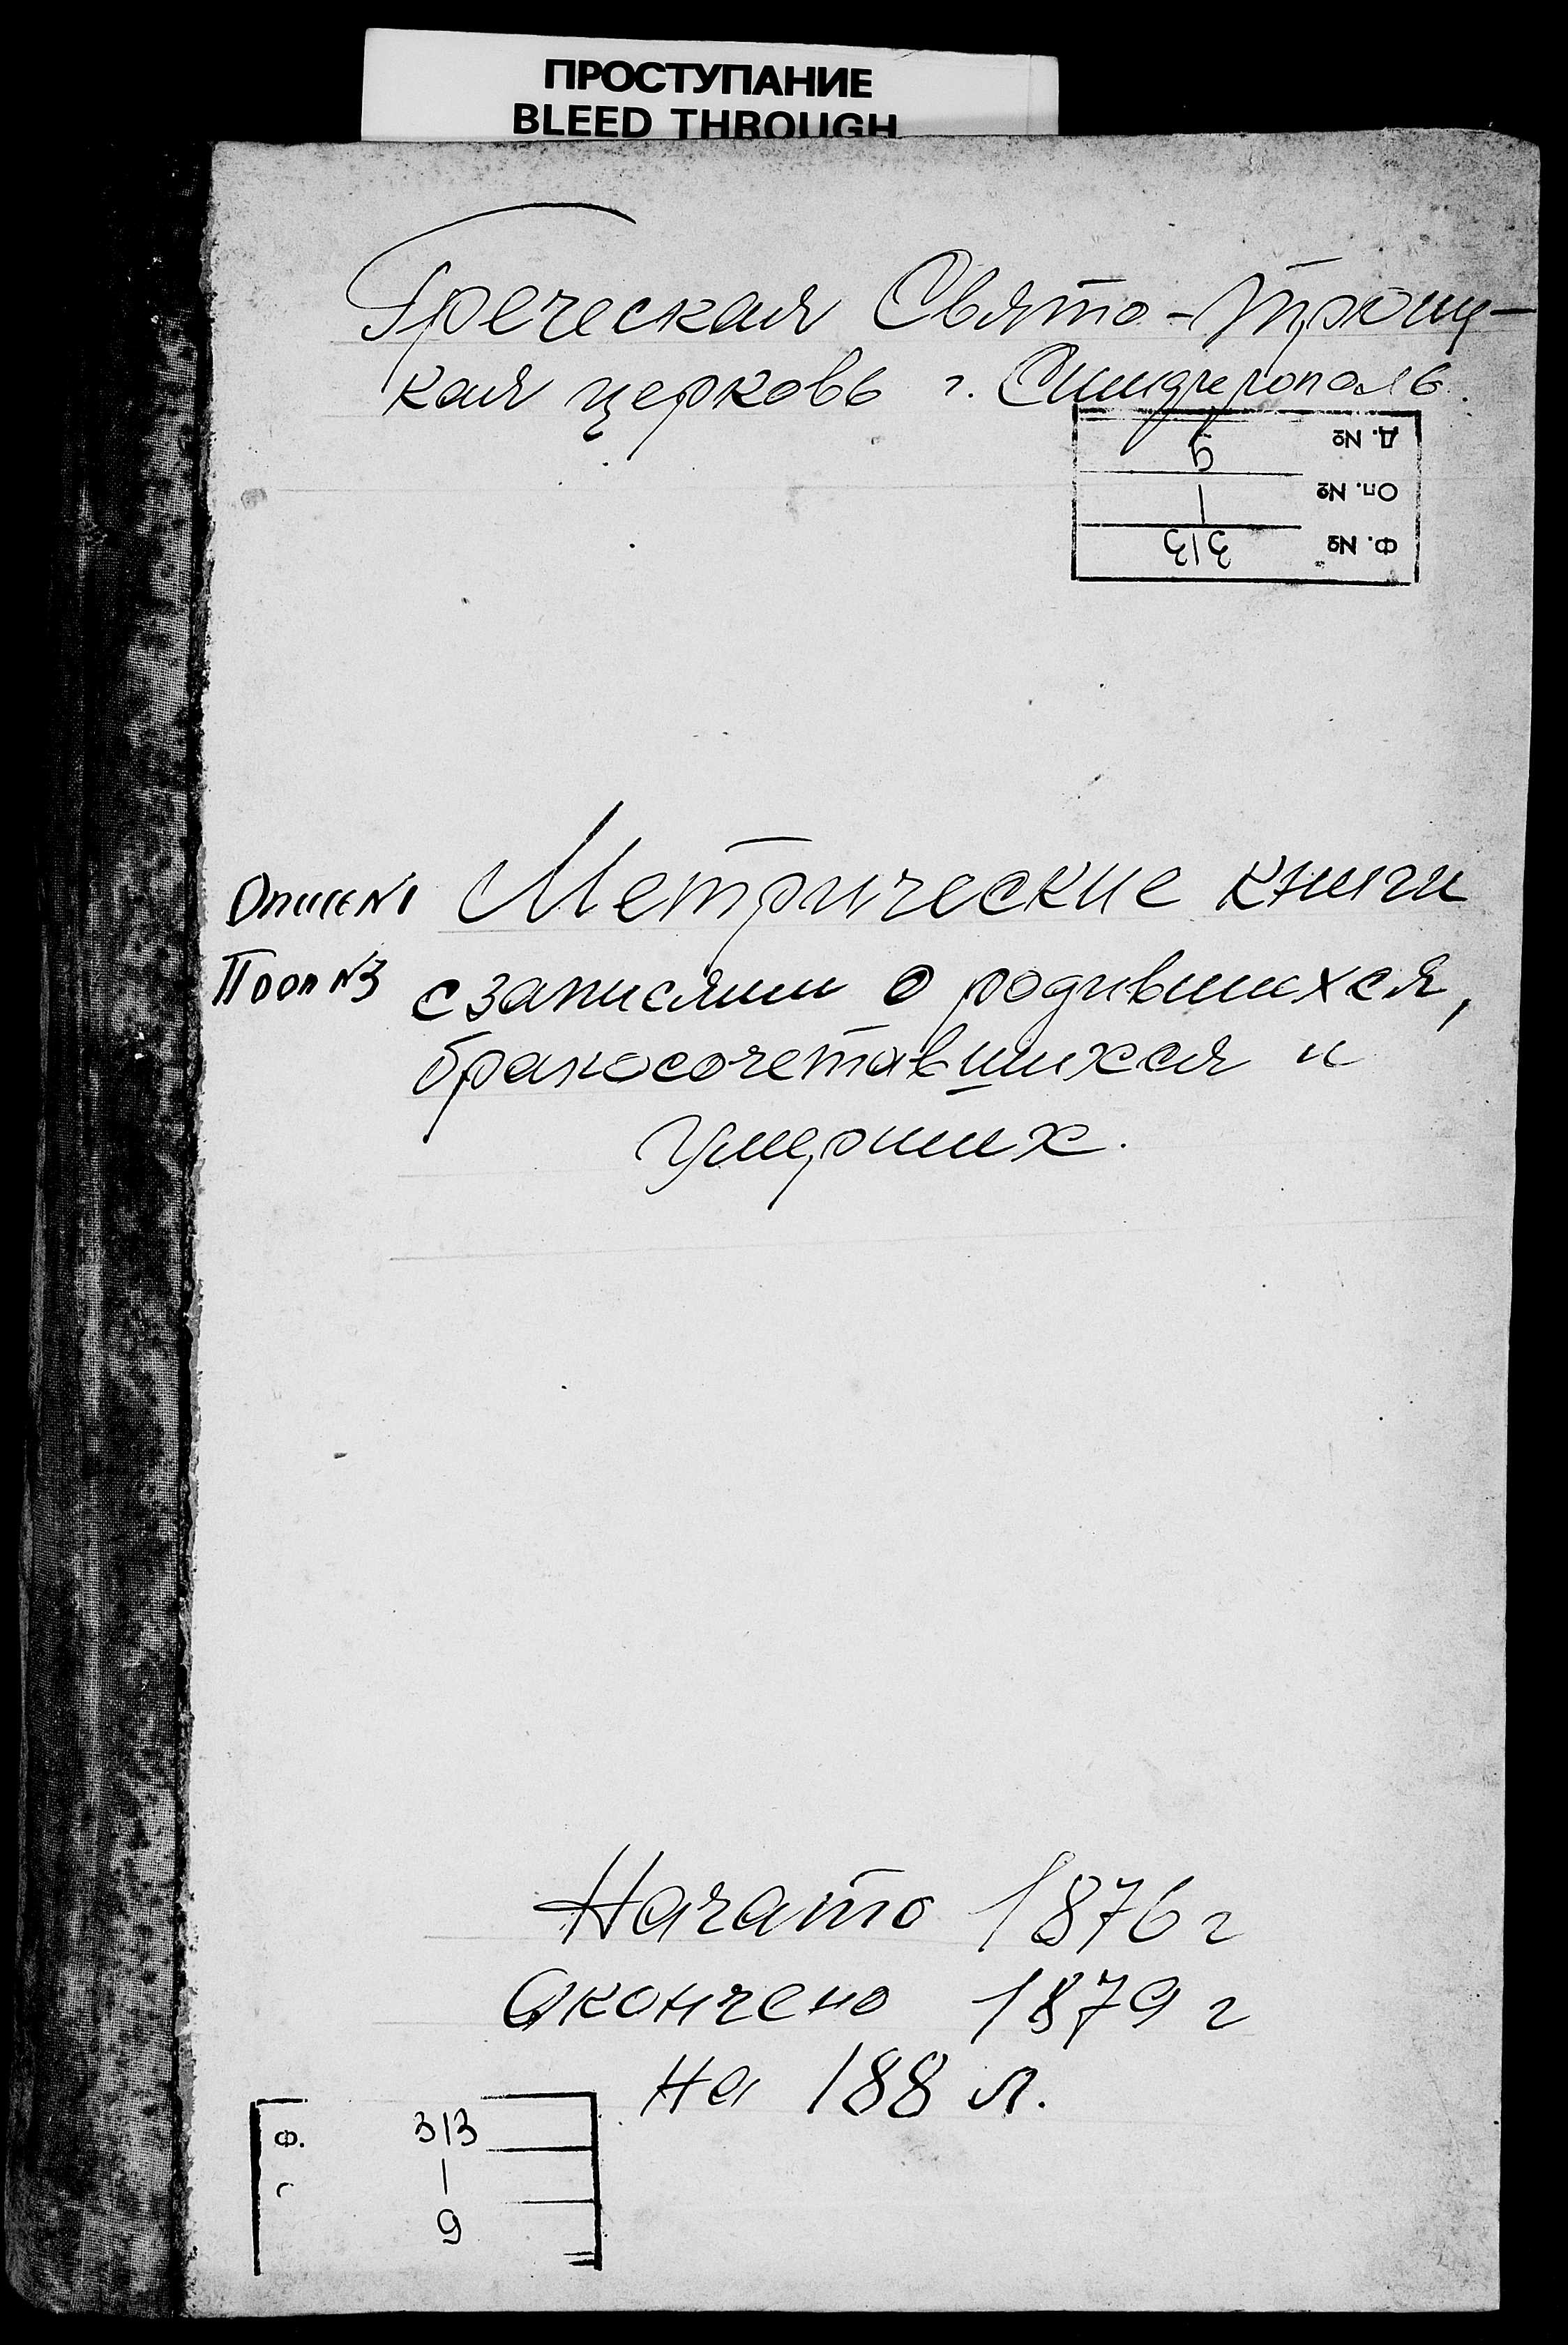 ПРОСТУПАНИЕ
BLEED THROUGH
Греческая Свято-Троиц-
кая церковь г. Симферополь.
Д. № 9
Оп. № 1
Ф. № 313
Метрические книги
с записями о родившихся,
бракосочетавшихся и
умерших.
Начато 1876 г
Окончено 1879 г
на 188 л.
Ф. 313
1
9